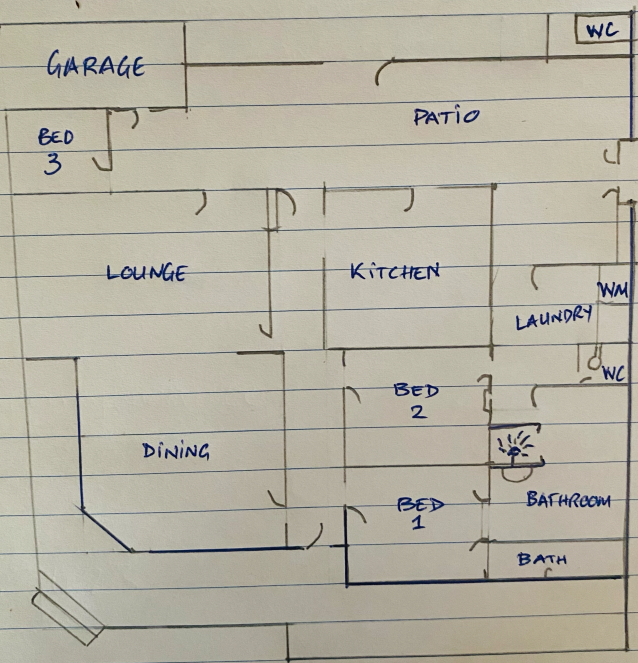 WC
GARAGE
PATIO
BED
3
LOUNGE
KITCHEN
WM
LAUNDRY
WC
BED
2
DINING
BED
1
BATHROOM
BATH